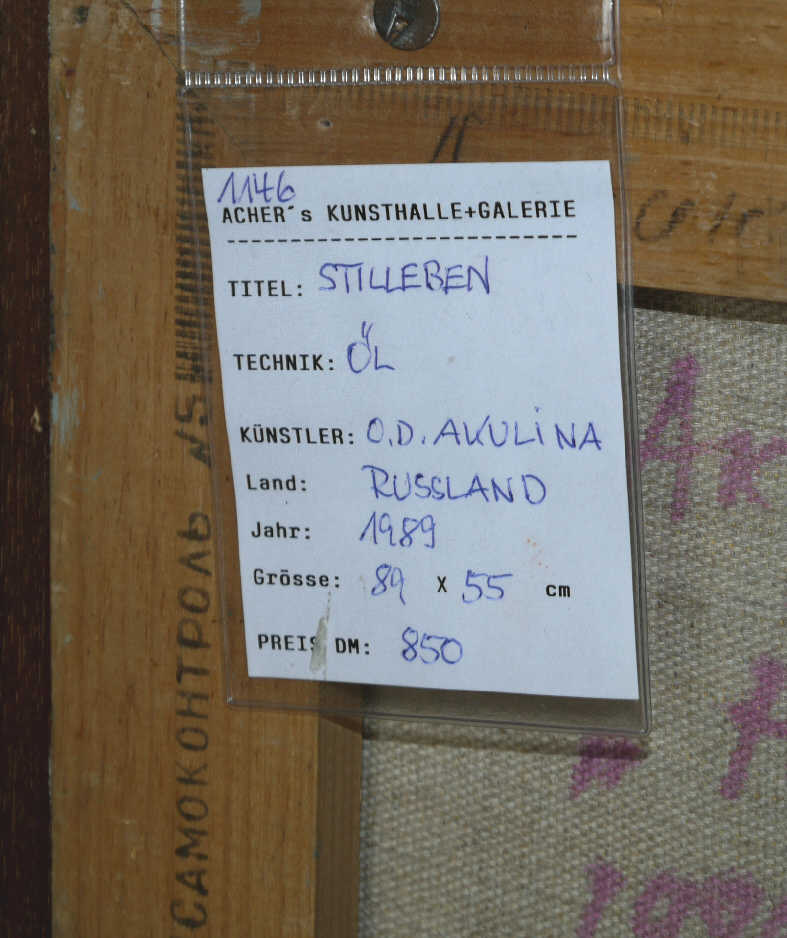 1146
ACHER´s KUNSTHALLE+GALERIE
TITEL: STILLEBEN
TECHNIK: ÖL
KÜNSTLER: O.D. AKULINA
Land: RUSSLAND
Jahr: 1989
Grösse: 89 X 55 cm
PREIS DM: 850
САМОКОНТРОЛЬ №5
Ак